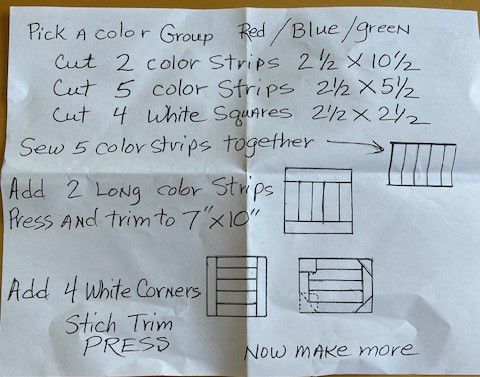 Pick A color Group Red / Blue / green
Cut 2 color Strips 2 1/2 X 10 1/2
Cut 5 color Strips 2 1/2 X 5 1/2
Cut 4 White Squares 2 1/2 X 2 1/2
Sew 5 color strips together
Add 2 Long color Strips
Press And trim to 7" X 10"
Add 4 White Corners
Stich Trim
PRESS
Now make more